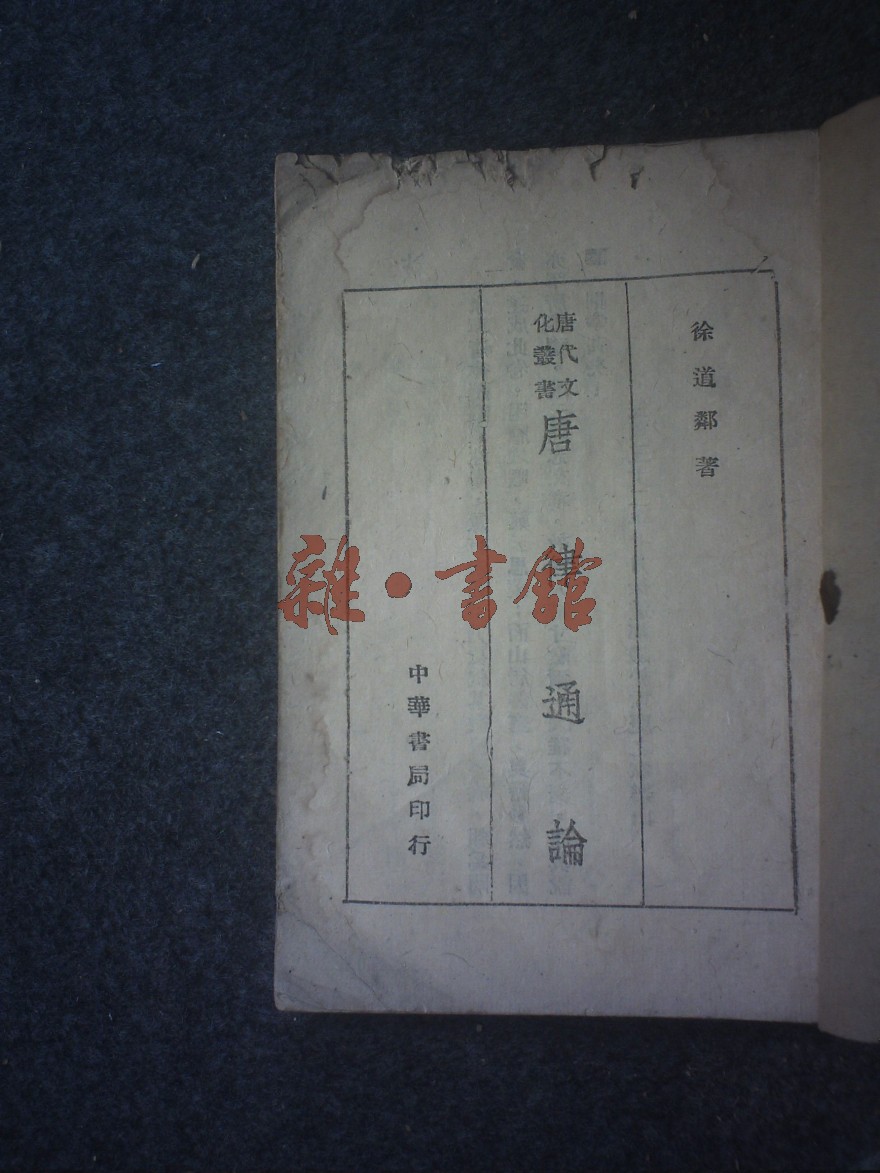 徐道鄰著
唐代文
化叢書
唐律通論
中華書局印行
雜·書館